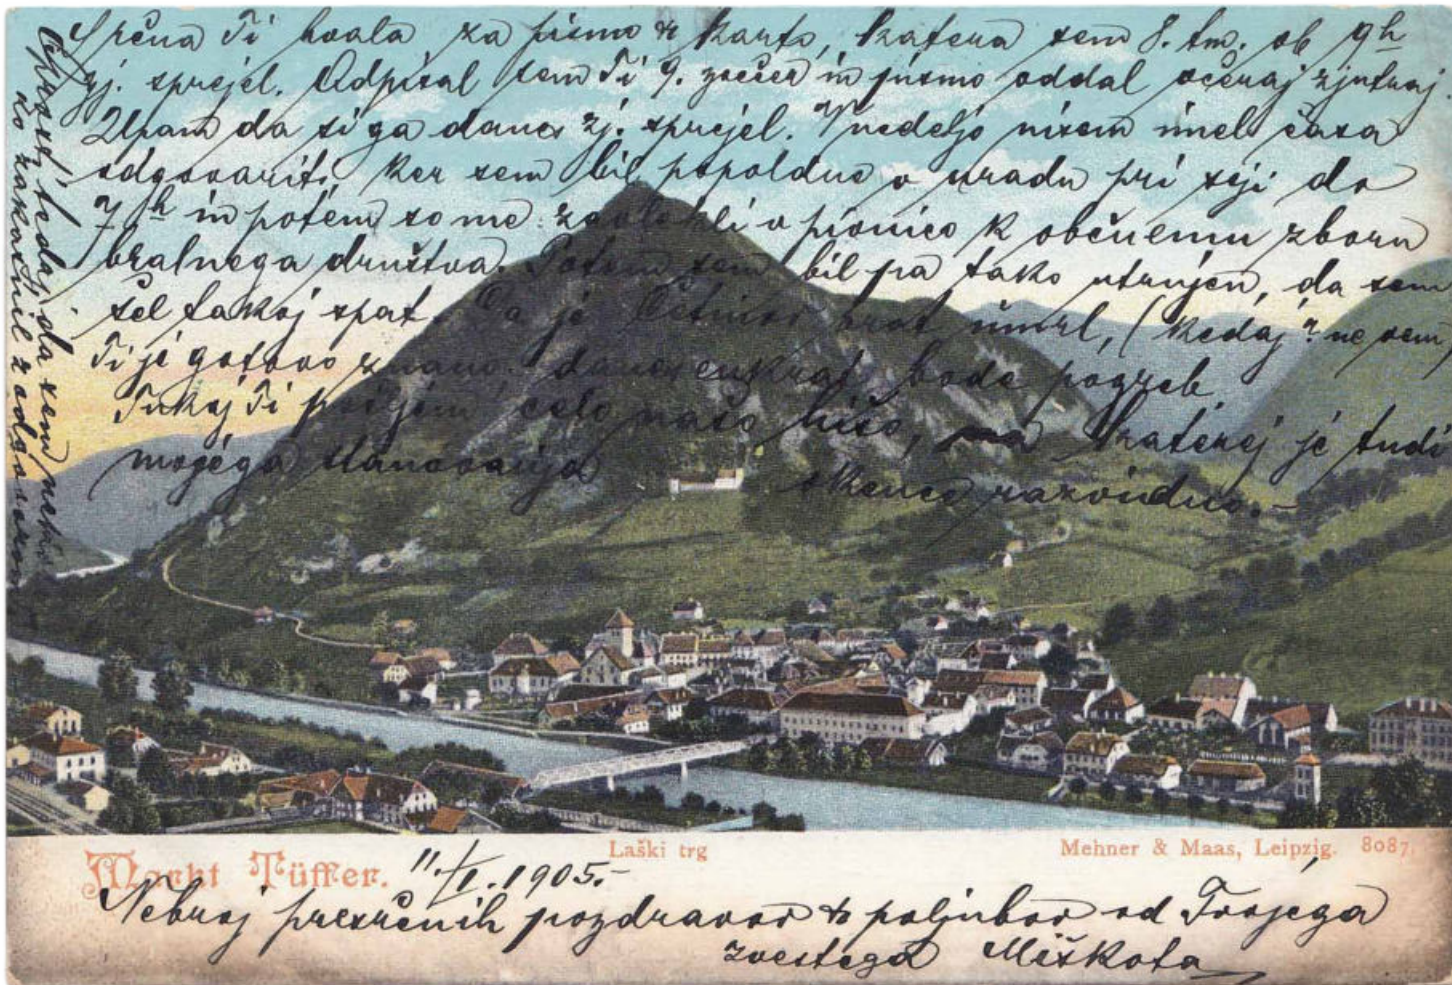 Srčna Ti hvala za pismo & karto, katera sem 8. tm. ob 9h
zj. sprejel. Odpisal sem Ti 9. zvečer in pismo oddal včeraj zjutraj.
Upam da si ga danes zj. sprejel. V nedeljo nisem imel časa
odgovariti, ker sem bil popoldne v uradu pri seji do
7h in potem so me zavlekli v pivnico k občnemu zboru
bralnega društva. Potem sem bil pa tako utrujen, da sem
šel takoj spat. Da je brat umrl, (kedaj? ne vem)
Ti je gotovo znano. danes enkrat bode pogreb.
Tukaj Ti pošljem celo našo hišo, na katerej je tudi
mojega stanovanja okence razvidno.-
Oprosti tedaj da sem neko-
ko zakasnil z odgovorom
Markt Tüffer.
Laški trg
Mehner & Maas, Leipzig. 8087.
11./I. 1905.-
Nebroj presrčnih pozdravov & poljubov od Tvojega
zvestega Miškota